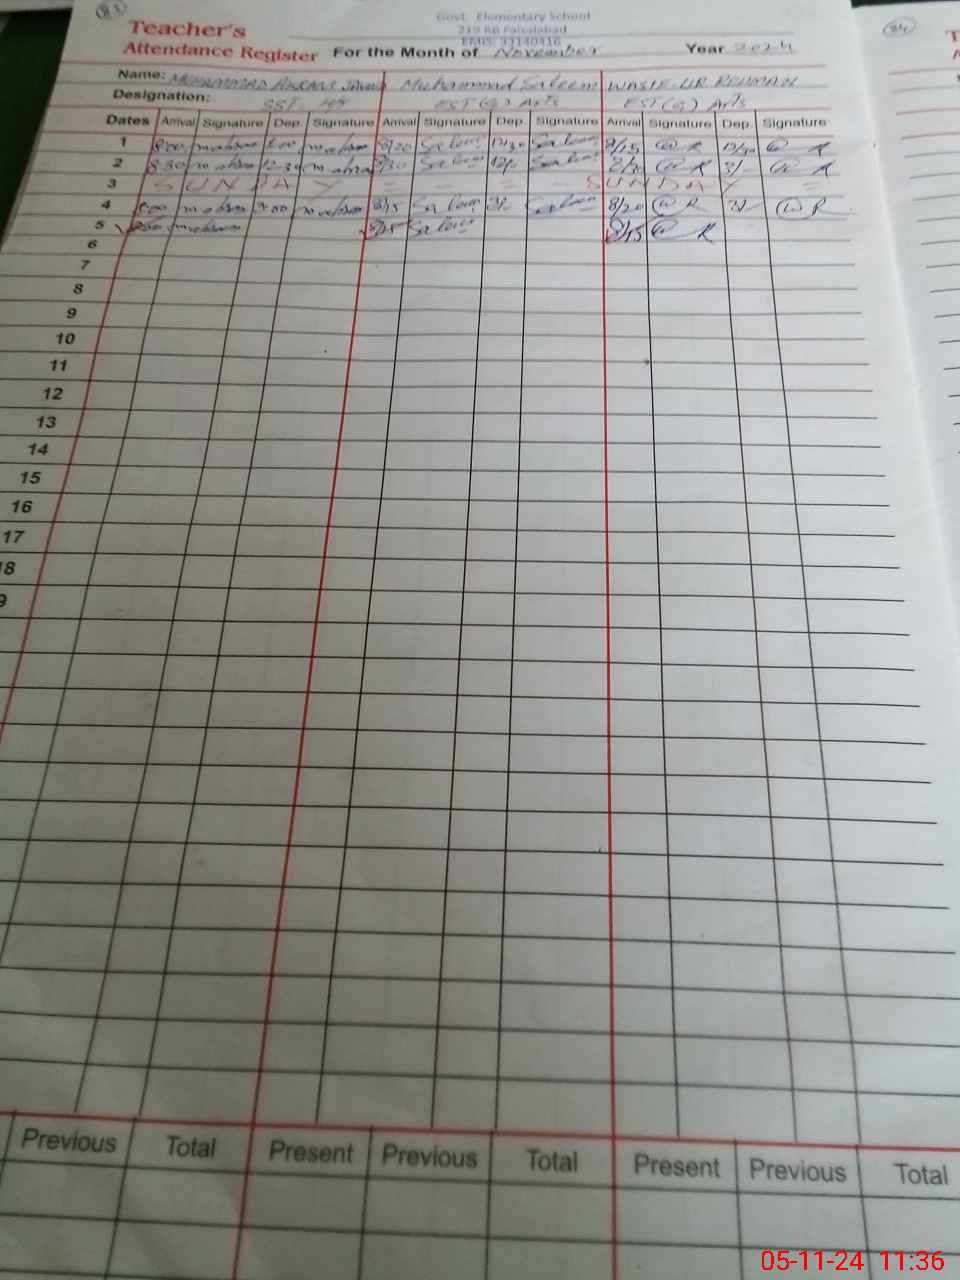 83
Teacher's Govt. Elementary School
219 RB Faisalabad
EMIS: 33140416
Attendance Register For the Month of November Year 2024
Name: MUHAMMAD Muhammad Saleem WASIF UR REHMAN
Designation: SST EST(G) Arts EST(G) Arts
Dates Arrival Signature Dep. Signature Arrival Signature Dep. Signature Arrival Signature Dep. Signature
1 8:00 8/20 Saleem 12/30 Saleem 8/15 W R 12/30 W R
2 8:30 12-30 Saleem Saleem W R 3/- W R
3 S U N D A Y = - = - S U N D A Y =
4 8:00 8/15 Saleem 3/- Saleem 8/20 W R 3/- W R
5 Saleem 8/15 W R
6
7
8
9
10
11
12
13
14
15
16
17
18
9
Previous Total Present Previous Total Present Previous Total
84
T
05-11-24 11:36